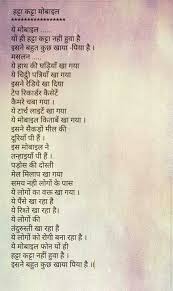 हट्टा कट्टा मोबाइल
******************
ये मोबाइल .....
यों ही हट्टा कट्टा नहीं हुवा है
इसने बहुत कुछ खाया -पिया है ।
मसलन .....
ये हाथ की घड़ियाँ खा गया
ये चिट्ठी पत्रियाँ खा गया
इसने रेडियो खा दिया
टेप रिकार्डर कैसेटें
कैमरे चबा गया ।
टार्च लाईटें खा गया
ये मोबाईल किताबें खा गया ।
इसने सैंकड़ों मील की
दूरियाँ पी हैं ।
इस मोबाइल ने
तन्हाइयाँ पी हैं ।
पड़ोस की दोस्ती
मेल मिलाप खा गया
समय नही लोगों के पास
ये लोगों का वक्त खा गया ।
ये पैसे खा रहा है
ये रिश्ते खा रहा है।
ये लोगों की
तंदुरुस्ती खा रहा है
ये लोगों को रोगी बना रहा है ।
ये मोबाईल फोन यों ही
हट्टा कट्टा नहीं हुवा है ।
इसने बहुत कुछ खाया पिया है ।।